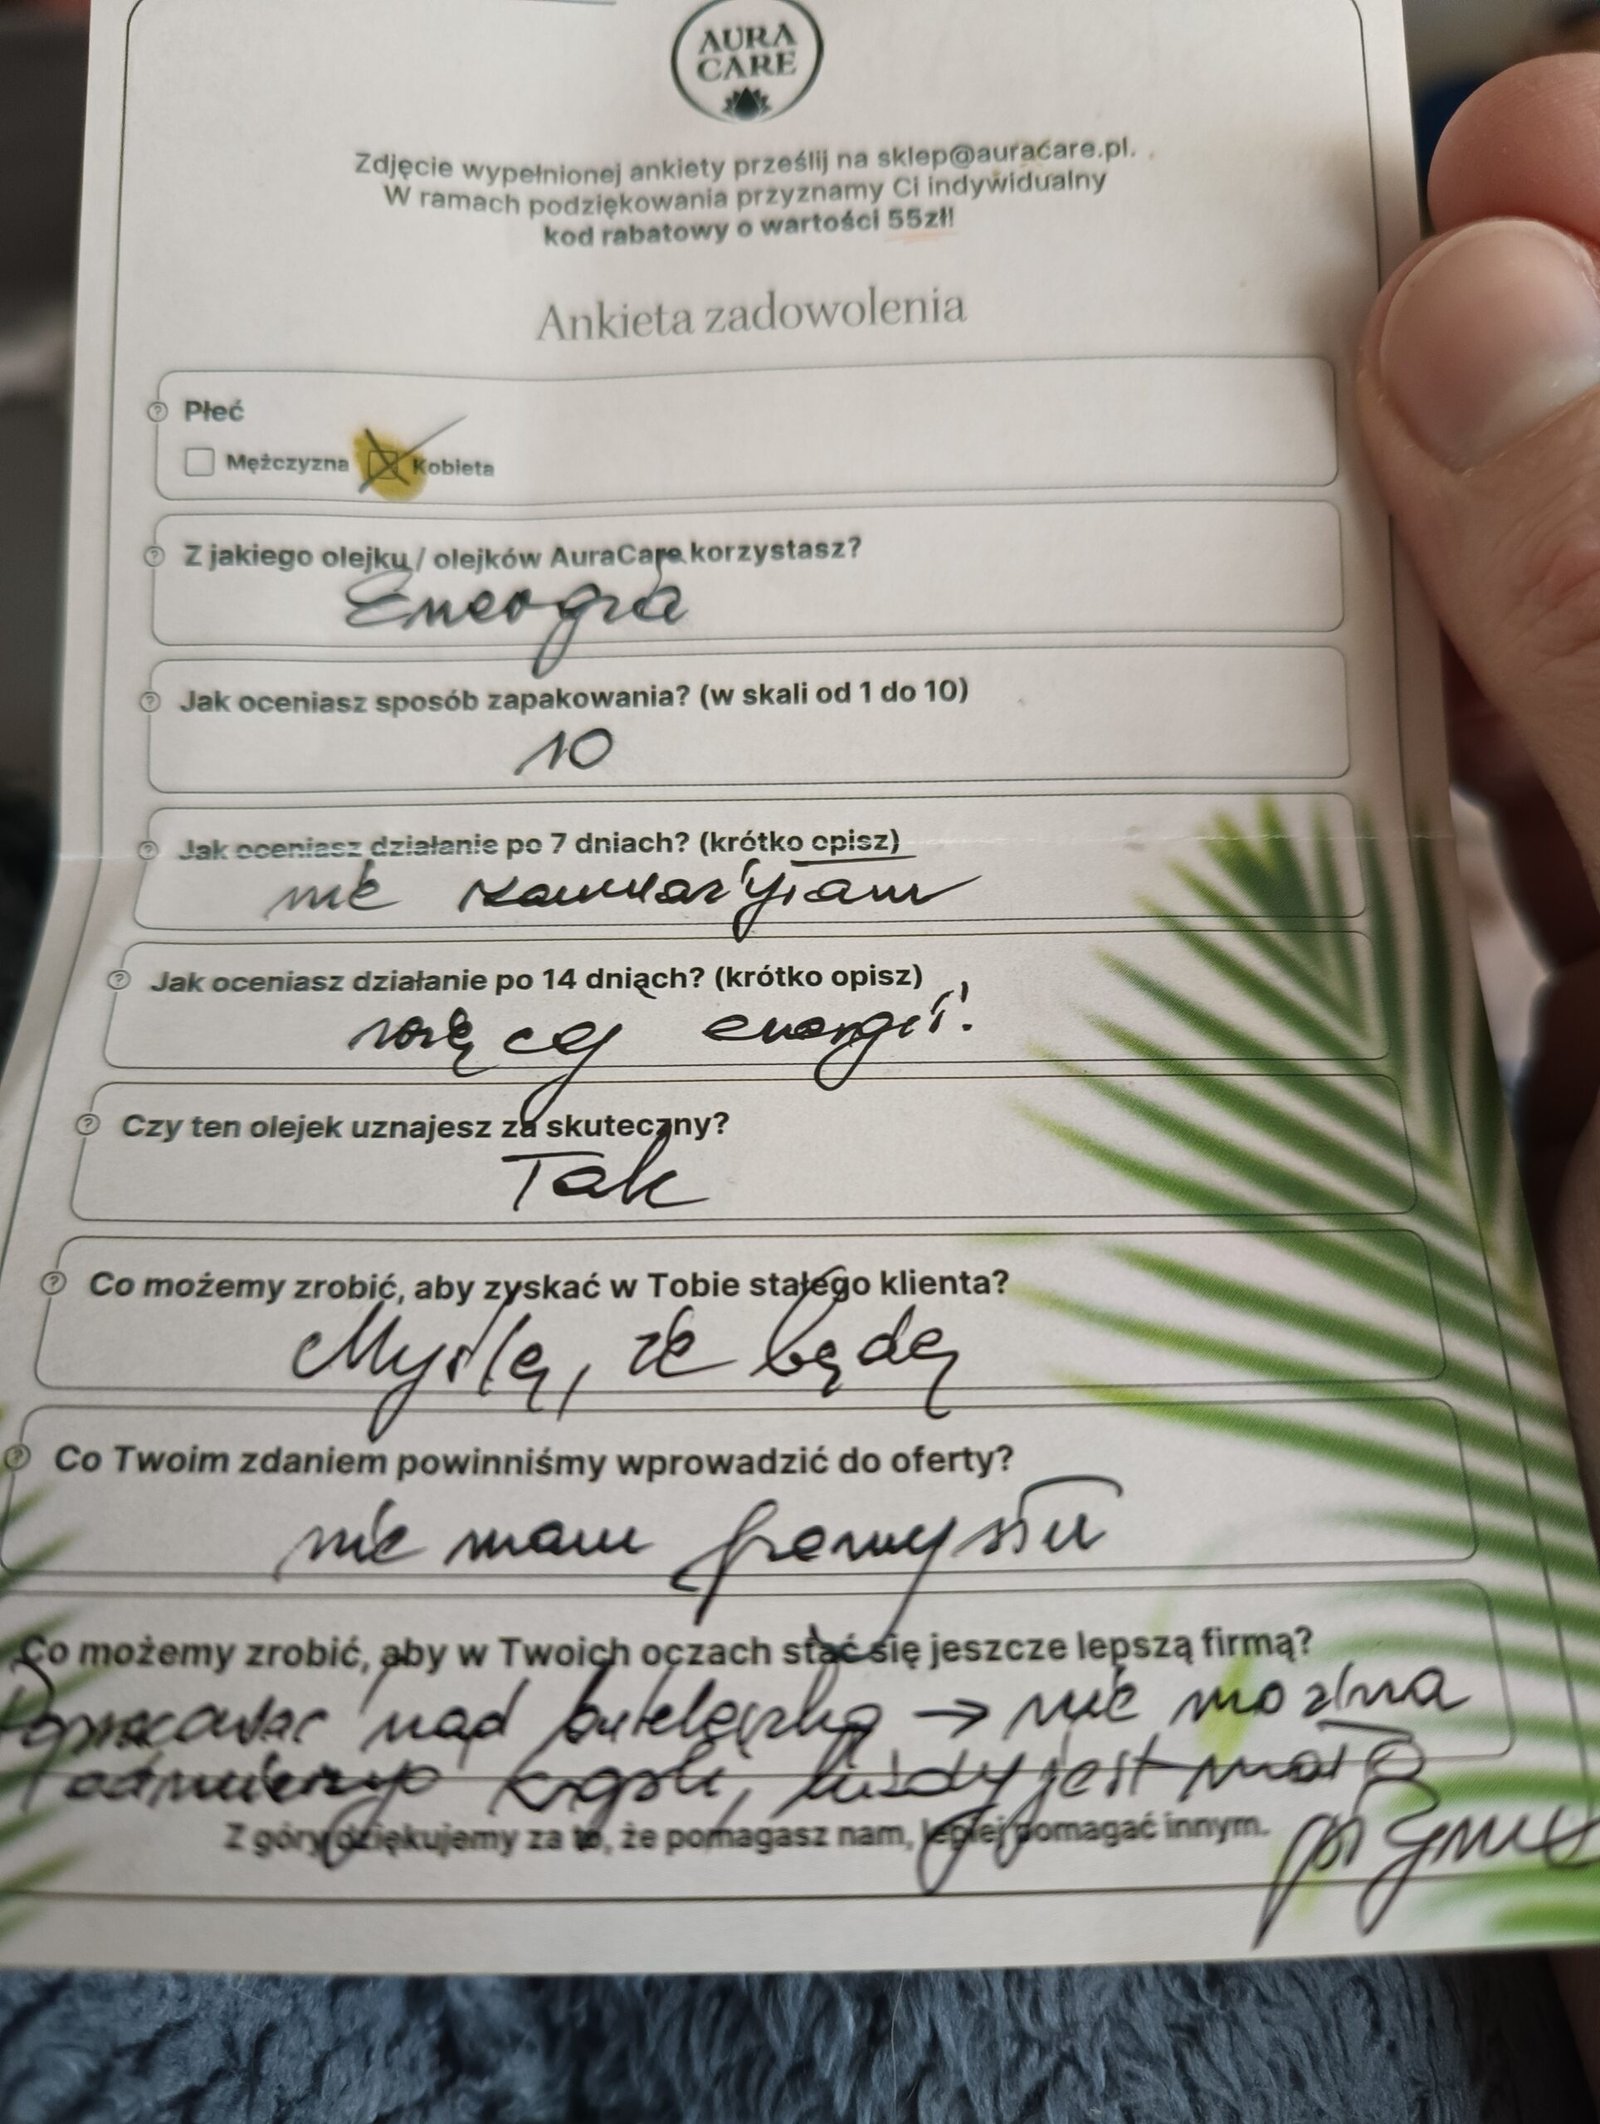 AURA
CARE
Zdjęcie wypełnionej ankiety prześlij na sklep@auracare.pl.
W ramach podziękowania przyznamy Ci indywidualny
kod rabatowy o wartości 55zł!
Ankieta zadowolenia
Płeć
Mężczyzna Kobieta
Z jakiego olejku / olejków AuraCare korzystasz?
Energia
Jak oceniasz sposób zapakowania? (w skali od 1 do 10)
10
Jak oceniasz działanie po 7 dniach? (krótko opisz)
nie zauważyłam
Jak oceniasz działanie po 14 dniach? (krótko opisz)
więcej energii!
Czy ten olejek uznajesz za skuteczny?
Tak
Co możemy zrobić, aby zyskać w Tobie stałego klienta?
Myślę, że będę
Co Twoim zdaniem powinniśmy wprowadzić do oferty?
nie mam pomysłu
Co możemy zrobić, aby w Twoich oczach stać się jeszcze lepszą firmą?
Popracować nad buteleczką → nie można
kropli, kiedy jest mało
płynu
Z góry dziękujemy za to, że pomagasz nam, lepiej pomagać innym.